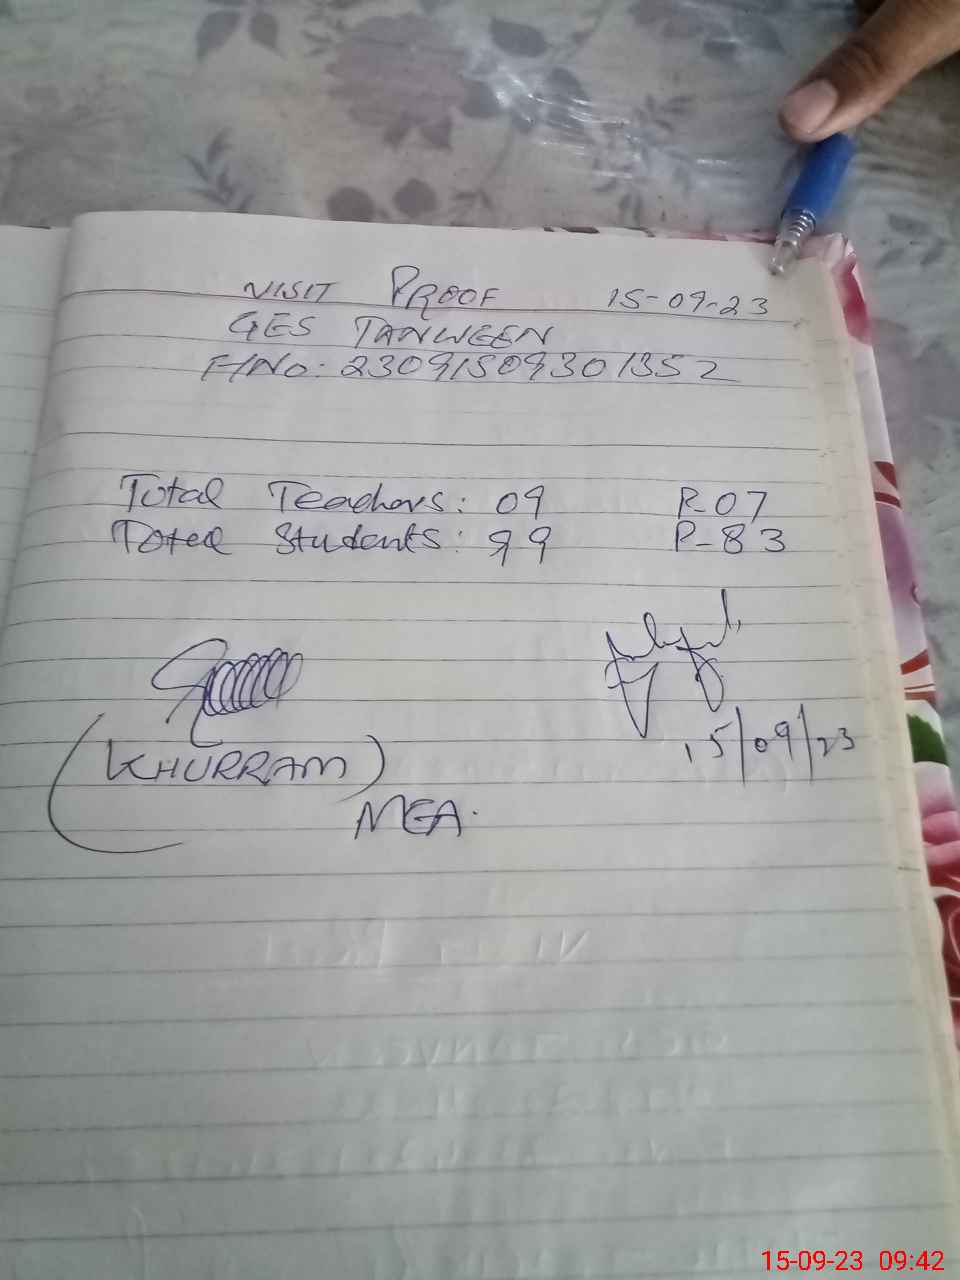 VISIT PROOF 15-09-23
GES TANWEEN
F/No: 23091509301352
Total Teachers: 09 P-07
Total Students: 99 P-83
(KHURRAM)
15/09/23
MEA.
15-09-23 09:42